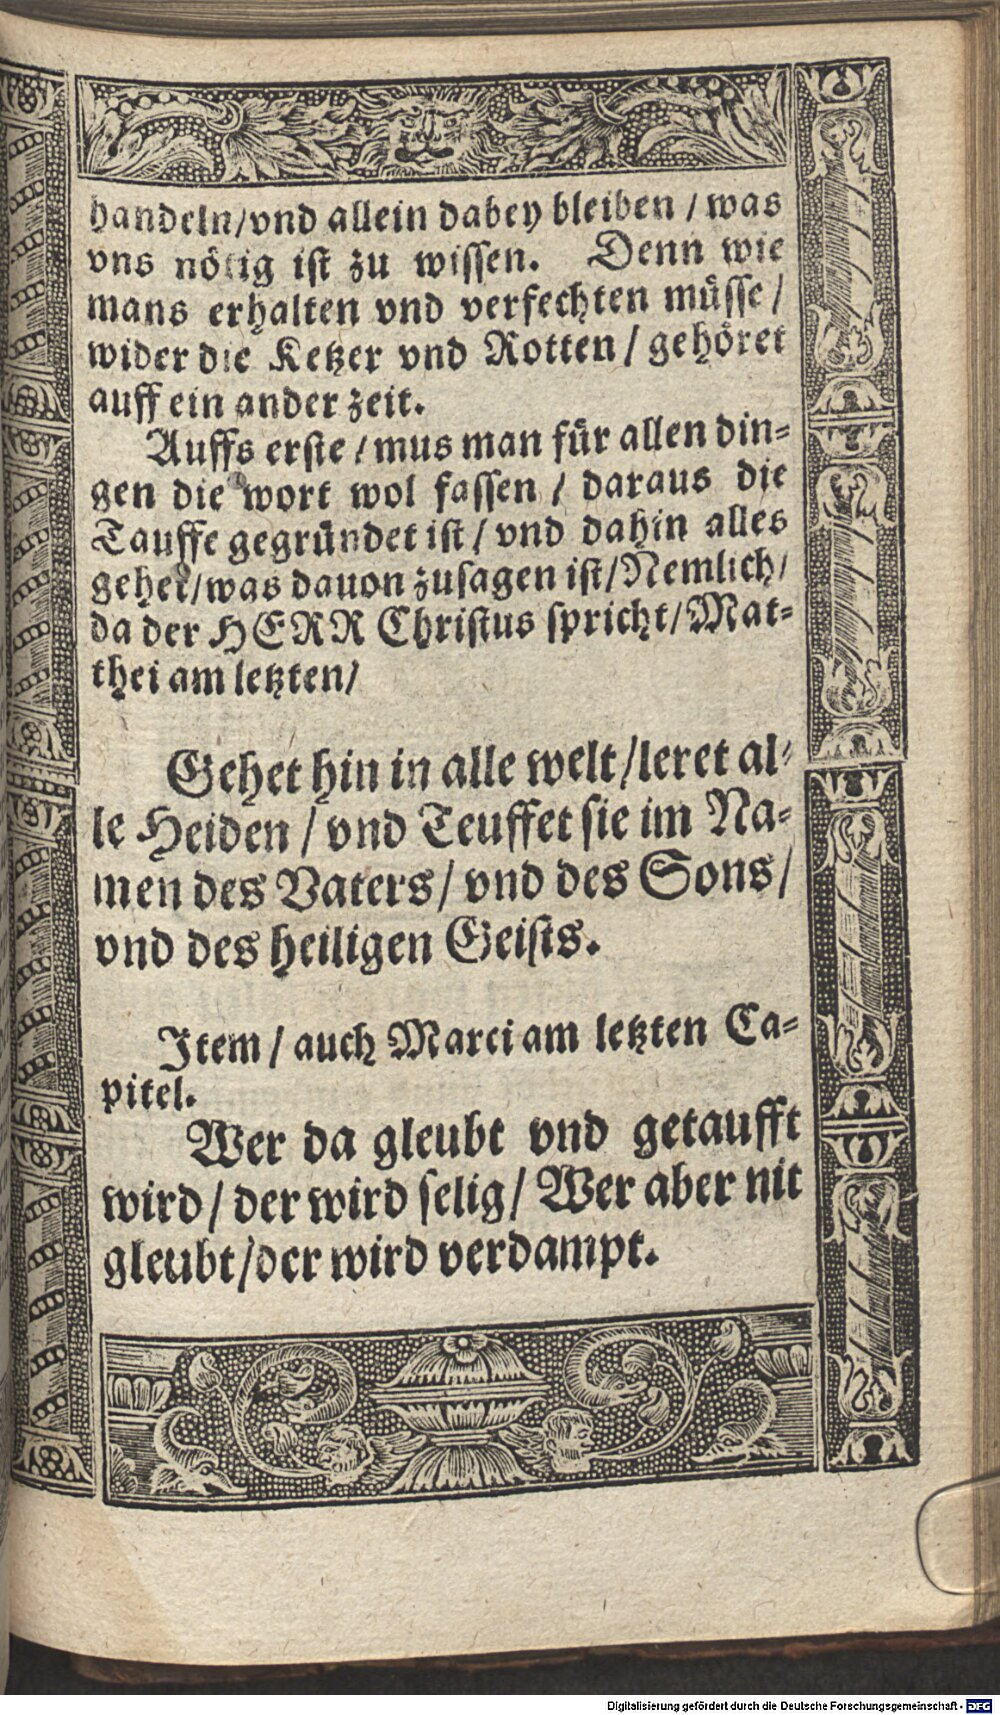 handeln/vnd allein dabey bleiben / was
vns nötig ist zu wissen. Denn wie
mans erhalten vnd verfechten müsse /
wider die Ketzer vnd Rotten / gehöret
auff ein ander zeit.
Auffs erste / mus man für allen din=
gen die wort wol fassen / daraus die
Tauffe gegründet ist / vnd dahin alles
gehet/was dauon zusagen ist/Nemlich/
da der HERR Christus spricht/Mat=
thei am letzten/
Gehet hin in alle welt/leret al=
le Heiden / vnd Teuffet sie im Na=
men des Vaters/ vnd des Sons/
vnd des heiligen Geists.
Item / auch Marci am letzten Ca=
pitel.
Wer da gleubt vnd getaufft
wird/ der wird selig/ Wer aber nit
gleubt/der wird verdampt.
Digitalisierung gefördert durch die Deutsche Forschungsgemeinschaft - DFG